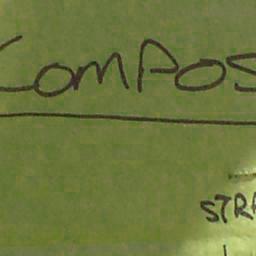 COMPOS
STRA